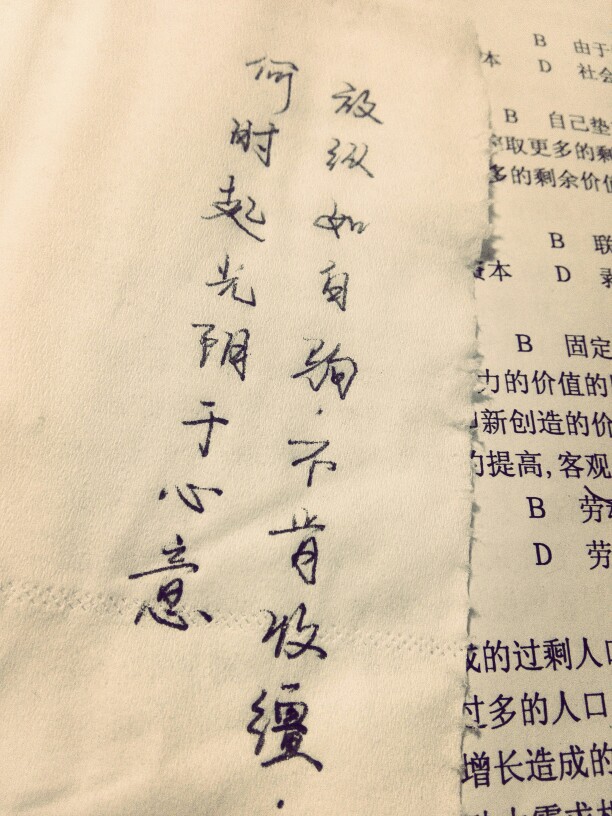 放纵如白驹.不肯收缰.
何时起光阴于心意
B 由于
本 D 社会
B 自己垫
取更多的剩
多的剩余价值
B 联
资本 D 剥
B 固定
力的价值的
新创造的价
的提高,客观
B 劳动
D 劳
成的过剩人口
过多的人口
增长造成的